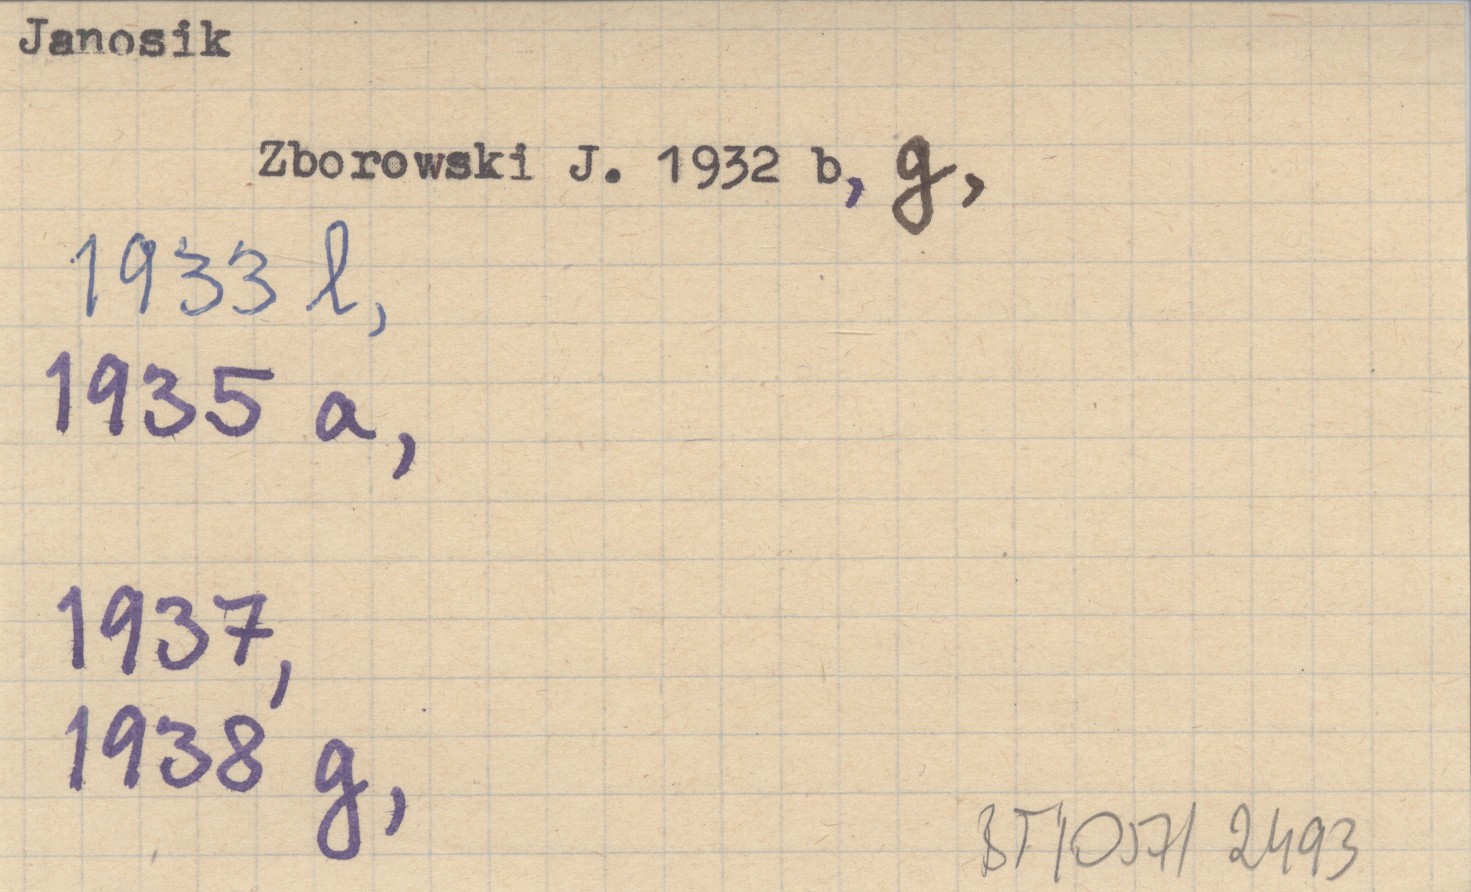 Janosik
Zborowski J. 1932 b, g,
1933 l,
1935 a,
1937,
1938 g,
BT/057/ 2493